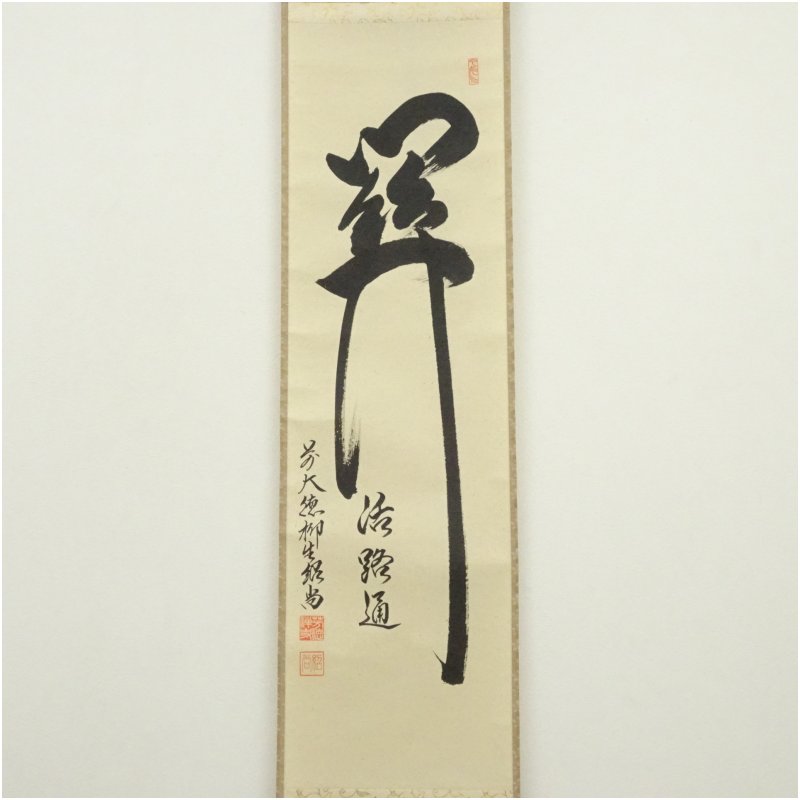 關
活路通
前大徳柳生紹尚